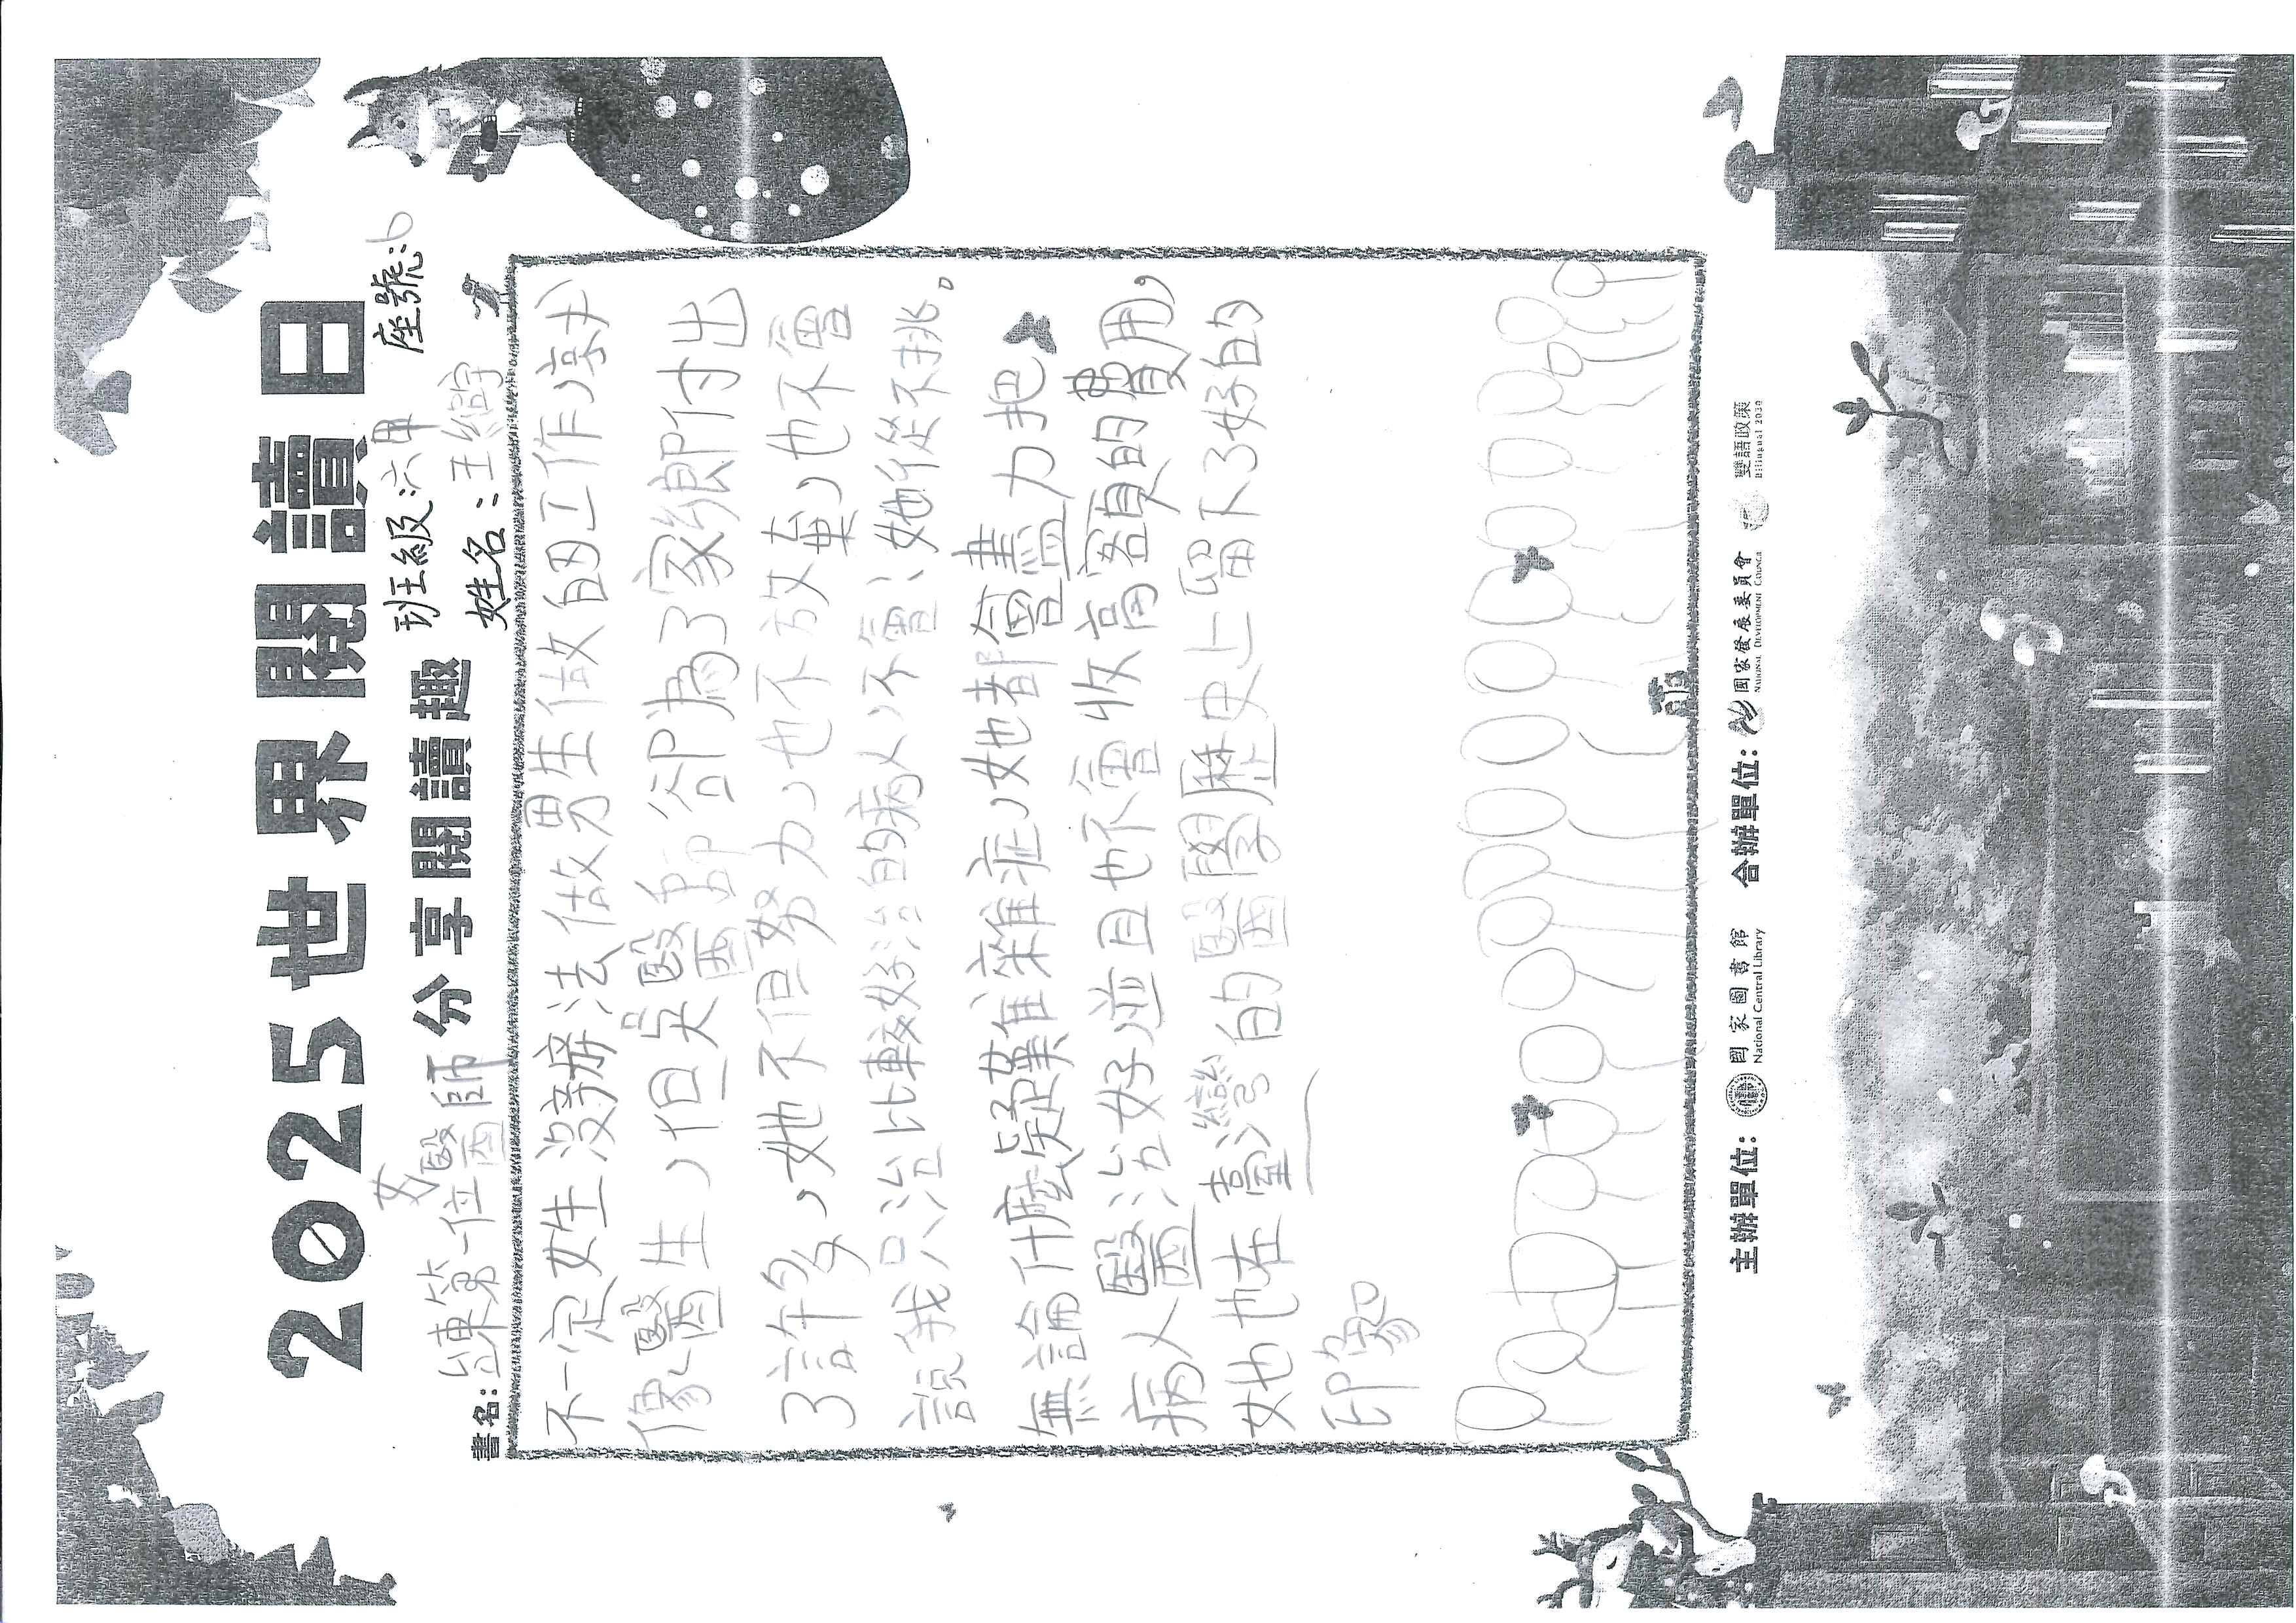 2025世界閱讀日
分享閱讀趣
班級:六甲 座號:6
姓名:王
書名:台東第一位女醫師
不一定女生沒辦法做男生做的工作,享
像醫生,但吳醫師卻為了家鄉付出
了許多,她不但努力,也不放棄,也不會
說我只治比較好治的病人,不會,她從不挑。
無論什麼疑難雜症,她都會盡力把
病人醫治好,並且也不會收高額的費用,
她也在臺灣的醫學歷史上留下了好的
印象
主辦單位: 國家圖書館 National Central Library 合辦單位: 國家發展委員會 National Development Council 雙語政策 Bilingual 2030